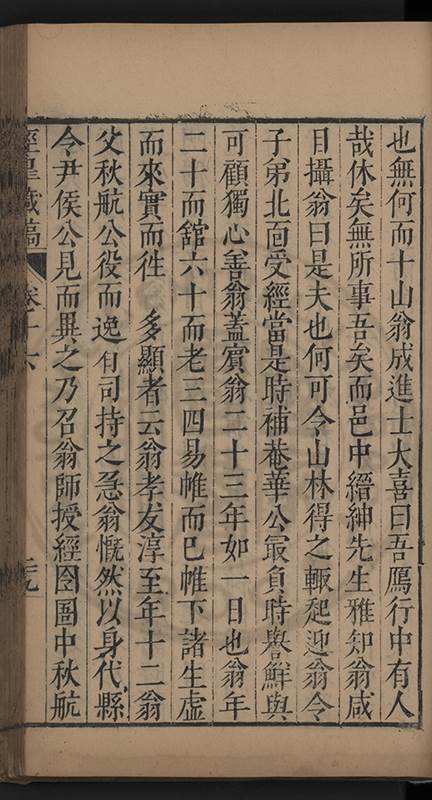 也無何而十山翁成進士大喜曰吾鴈行中有人
哉休矣無所事吾矣而邑中縉紳先生雅知翁咸
目攝翁曰是夫也何可令山林得之輙起迎翁令
子弟北面受經當是時補菴華公最負時譽鮮與
可顧獨心善翁蓋賓翁二十三年如一日也翁年
二十而舘六十而老三四易帷而巳帷下諸生虛
而來實而徃　多顯者云翁孝友淳至年十二翁
父秋航公役而逸有司持之急翁慨然以身代縣
令尹侯公見而異之乃召翁師授經囹圄中秋航
經皐藏稿
卷十六
二九